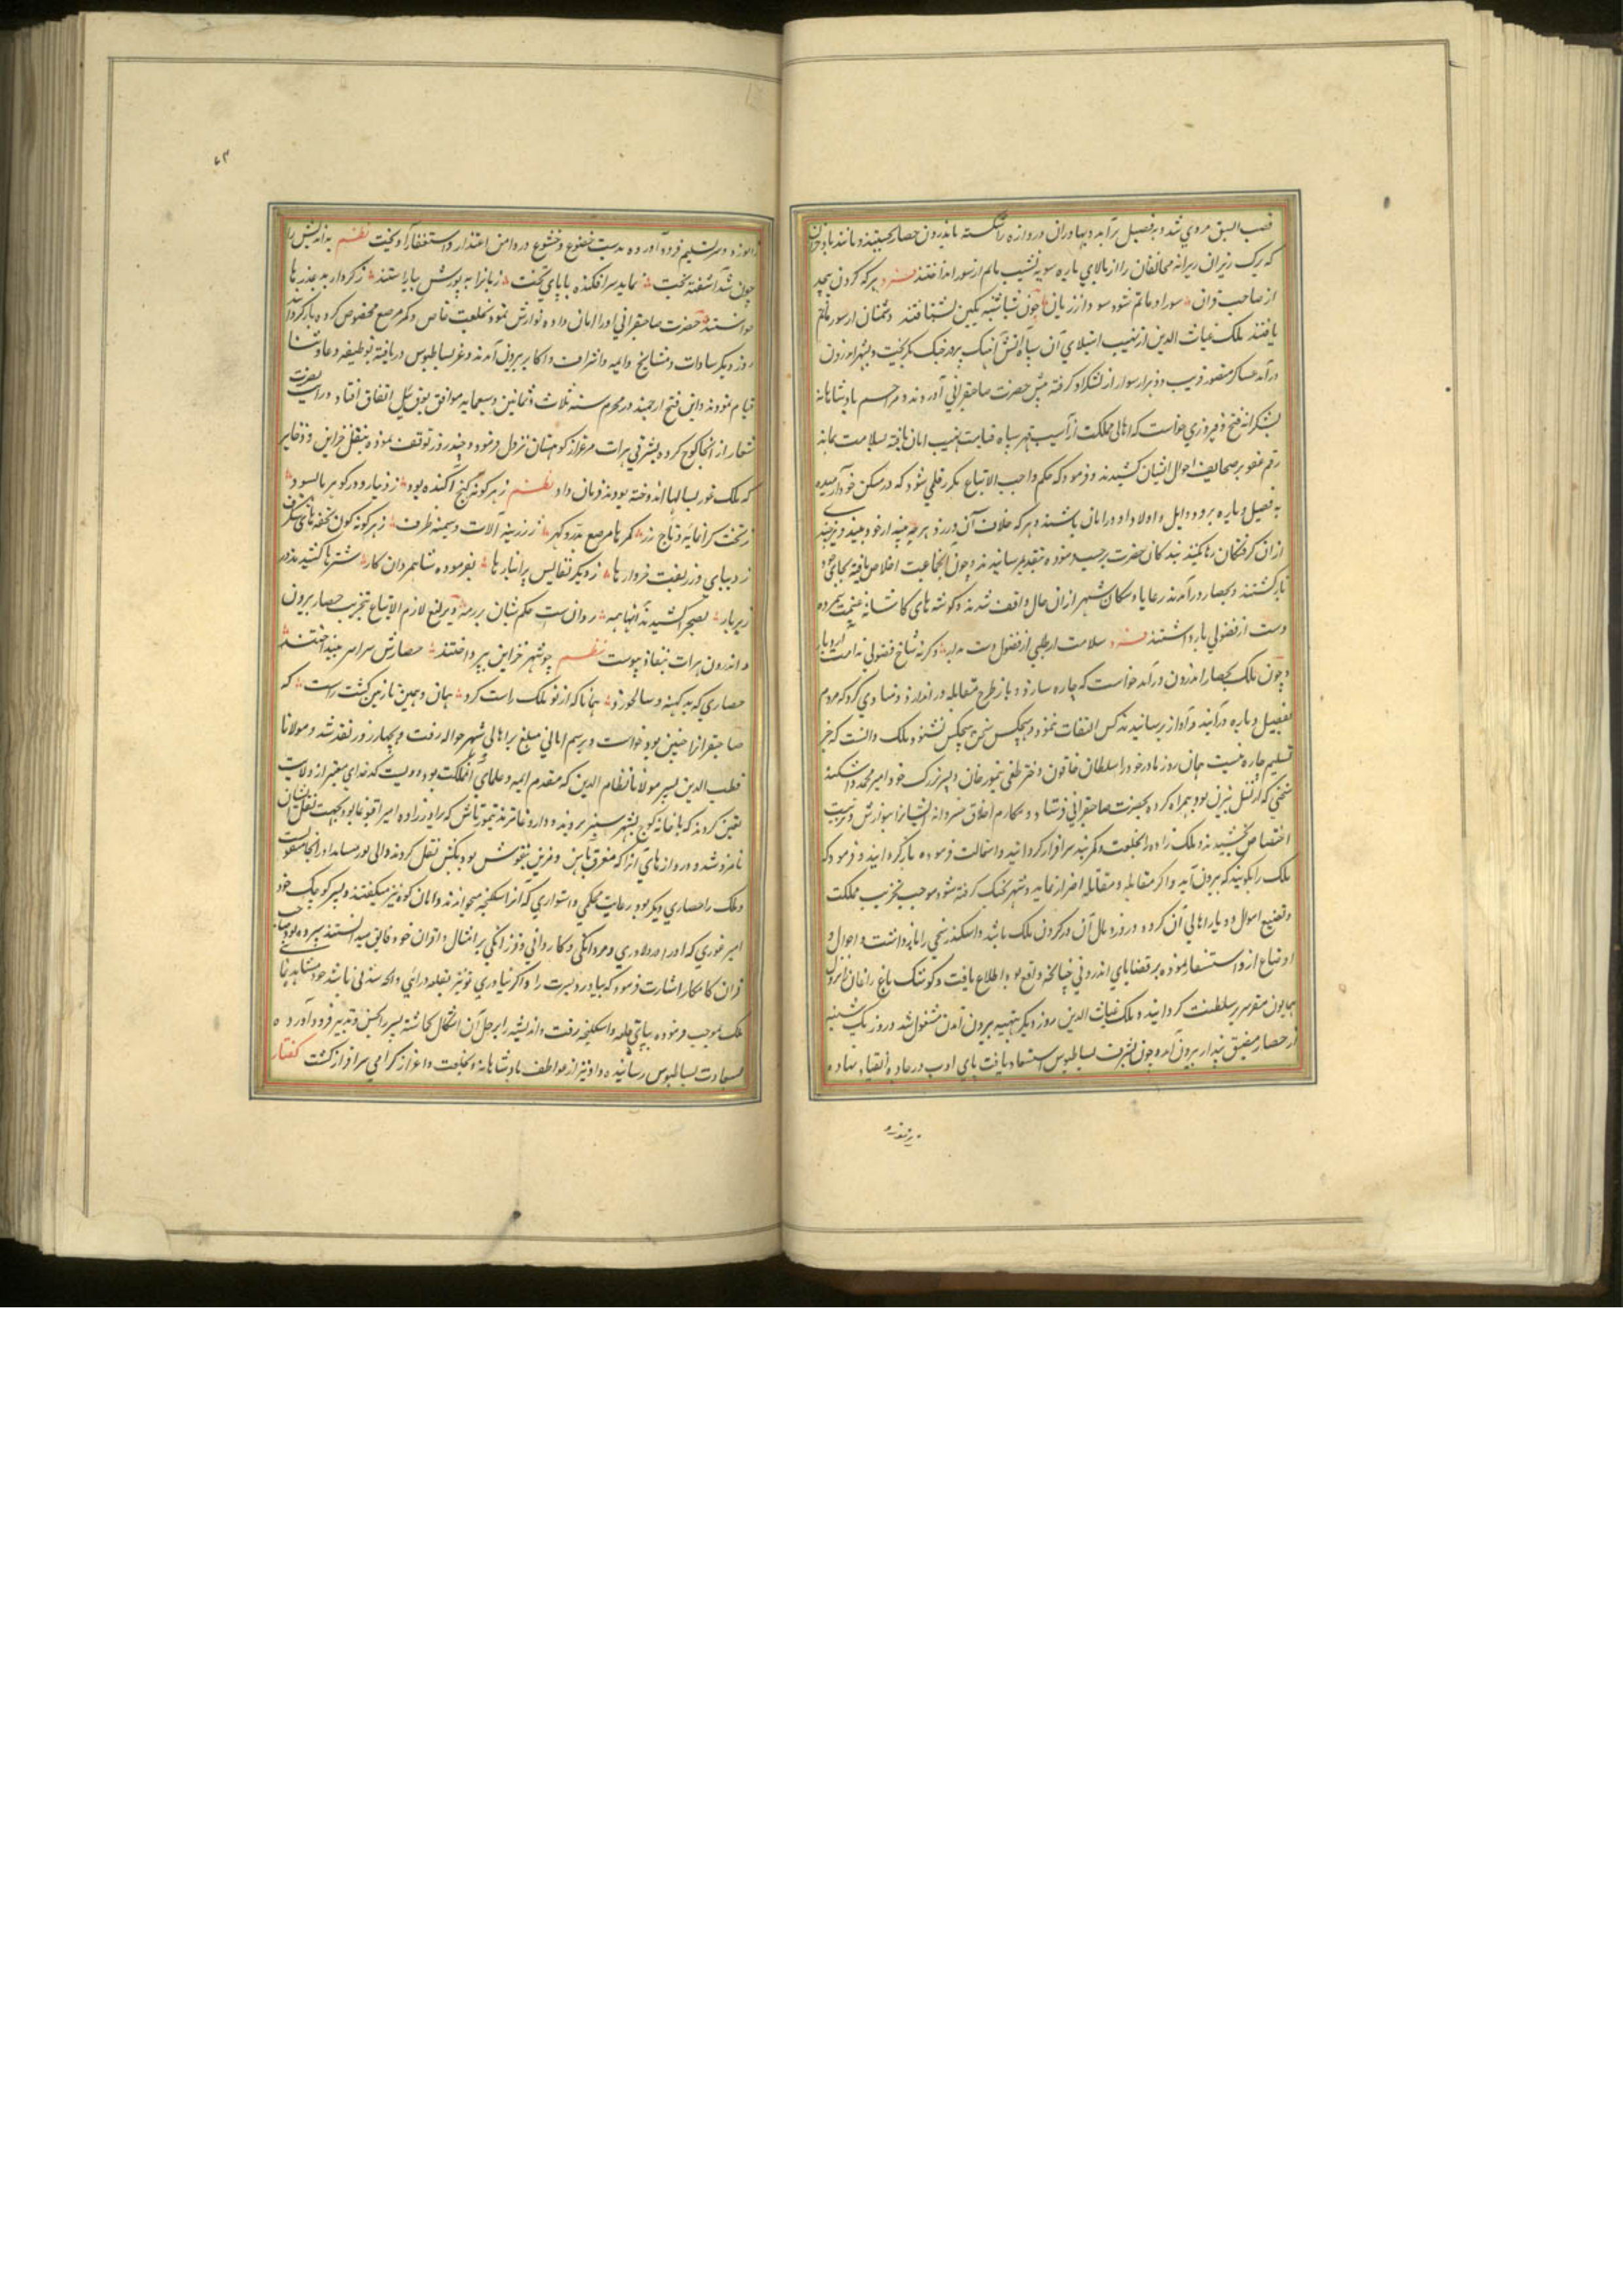 قصب السبق مردی شد و بفصیل برآمد و بهادران دروازه را شکسته باندرون حصار جستند و مانند باد خزان
که برک رزان ریزاند مخالفان را از بالای باره سوی نشیب بالم از سور انداختند فرد هر که کردن پیچد
از صاحب قران سور او ماتم شود سود از زیان چون شباشبه بکین بشتافتند دشمنان از سور ماتم
یافتند ملک غیاث الدین از نهیب استیلای آن سپاه آتش آهنک بروز جنک بکریخت و بشهر اندرون
درآمد عساکر منصور قریب دو هزار سوار از لشکر او کرفته پیش حضرت صاحبقرانی آوردند و مراسم پادشاهانه
بشکرانه فتح و فیروزی خواست که اهالی مملکت از آسیب قهر سپاه قیامت نهیب امان یافته بسلامت بمانند
رقم عفو بر صحایف احوال ایشان کشیدند و فرمود که حکم واجب الاتباع بکرر قلمی شود که در مسکن خود آرمیده
به فصیل و باره برود و اهل و اولاد او در امان باشند و هر که خلاف آن ورزد هر چه بیند از خود بیند
از آن کرفتکان رها کنند بندکان حضرت بر حسب فرموده بتقدیم رسانیدند و چون آن جماعت اخلاص یافته بجای خود
باز کشتند و بحصار درآمدند رعایا و سکان شهر از آن حال واقف شدند و کوشه های کاشانه غنیمت شمرده
دست از فضولی باز داشتند فرد سلامت ار طلبی از فضول دست بدار وکرنه شاخ فضولی ندامت آرد بار
و چون ملک بحصار اندرون درآمد خواست که چاره سازد و باز طرح مقابله در اندازد و منادی کرد که مردم
بفصیل و باره درآیند و آواز برسانیدند کس التفات ننمود و هیچکس سخن هیچکس نشنود ملک دانست که جز
تسلیم چاره نیست همان روز مادر خود را سلطان خاتون دختر طغی تیمور خان و پسر بزرک خود امیر محمد و اسکندر
شیخی که از نسل بیژن بود همراه کرده بحضرت صاحبقرانی فرستاد و مکارم اخلاق خسروانه ایشانرا بنوازش و تربیت
اختصاص بخشیدند و ملک زاده را بخلعت و کمر بند سرافراز کردانید و استمالت فرموده باز کردانید و فرمود که
ملک را بکویند که بیرون آید و اکر مقابله و مقاتله اصرار نماید و شهر بجنک کرفته شود موجب تخریب مملکت
و تضییع اموال و دیار اهالی آن کردد و وزر و بال آن در کردن ملک باشد و اسکندر شیخی را باز داشت و احوال و
اوضاع از و استفسار نموده بر قضایای اندرونی چنانچه واقع بود اطلاع یافت و کوشک باغ زاغان نزول
همایون مقر سریر سلطنت کردانید و ملک غیاث الدین روز دیکر بتهیه بیرون آمدن مشغول شد و روز یک شنبه
از حصار مضیق پندار بیرون آمد و چون بشرف بساط بوس استسعاد یافت پای ادب در جاده انقیاد نهاده
زانو زد و سر تسلیم فرود آورده بدست خضوع و خشوع در دامن اعتذار و استغفار آویخت نظم بداندیش را
چون شد آشفته بخت نماید سرافکنده با پای تخت زبانرا به پوزش بیاراستند ز کردار بد عذرها
خواستند حضرت صاحبقرانی او را امان داده نوازش نمود و بخلعت خاص و کمر مرصع مخصوص کرده باز کردانید
روز دیکر سادات و مشایخ و ایمه و اشراف و اکابر بیرون آمدند و عز بساط بوس دریافته بوظیفه دعا و ثنا
قیام نمودند و این فتح ارجمند در محرم سنه ثلاث و ثمانین و سبعمایه موافق ییل اتفاق افتاد و رایت نصرت
شعار از آنجا کوچ کرده بشرقی هرات مرغزار کوهستان نزول فرمود و چند روز توقف نموده بنقل خزاین و ذخایر
که ملک غور بسالها اندوخته بودند فرمان داد نظم ز هر کونه کنج آکنده بود ز دینار و در کوهر نابسود
ز تخت کرانمایه و تاج زر کمرها مرصع بدر و کهر ز زرینه آلات و سیمینه ظرف ز هر کونه کون تحفهای شکرف
ز دیبای و زربفت خروارها ز دیکر نفایس پر انبارها بفرموده شاه مردان کار شترها کشیدند در
زیر بار بصحرا کشیدند آنها همه روان است حکم شبان بر رمه و یرلیغ لازم الاتباع بتخریب حصار برون
و اندرون هرات بنفاذ پیوست نظم چو شهر خزاین بپرداختند حصارش سراسر بینداختند
حصاری که بد کهنه و سالخورد همانا که از نو ملک راست کرد همان و همین نازنین کشت راست که
صاحبقران چنین بود خواست و برسم امانی مبلغ بر اهالی شهر حواله رفت و بچهار روز نقد شد و مولانا
قطب الدین پسر مولانا نظام الدین که مقدم ایمه و علمای آن مملکت بود و دویست کدخدای معتبر از ولایت
تعیین کردند که با خانه کوچ بشهر سبز بروند و داروغا تیمورتاش که برادرزاده امیر اقبوغا بود بجهت نقل ایشان
نامزد شد و دروازهای آنرا که مغرق بآهن و مزین بنقوش بود بکش نقل کردند
و ملک را حصاری دیکر بود برعایت محکمی و استواری که آنرا اسکلچه میخوانند و امان کوه نیز میکفتند و پسر کوچک خود
امیر غوری که او را در دلاوری و مردانکی و کاردانی و فرزانکی بر امثال و اقران خود فایق میدانستند سپرده بود صاحب
قران کامکار اشارت فرمود که بیاید و پسرت را و اکر نیاوری تو نیز بقلعه درائی
ملک بموجب فرموده بپای قلعه و اسکلچه رفت و اندیشه را بر حل آن اشکال کماشته پسر را بحسن تدبیر فرود آورده
بسعادت بساط بوس رسانیده و او نیز از عواطف پادشاهانه بخلعت و اعزاز کرامی سرافراز کشت کفتار